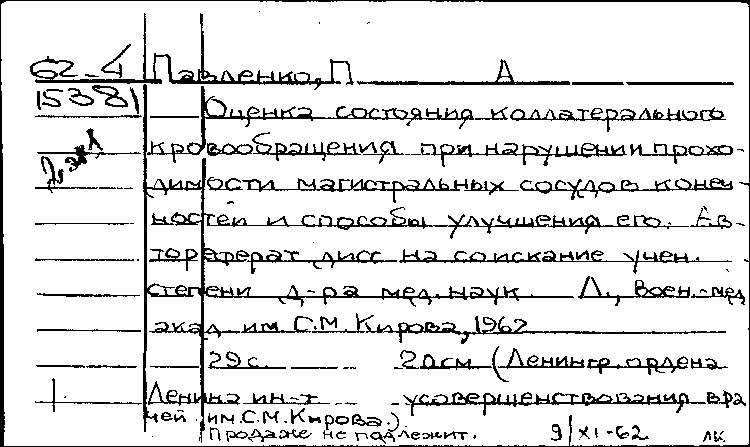 62-4 Павленко, П А
15381
Оценка состояния коллатерального
кровообращения при нарушении прохо-
димости магистральных сосудов конеч-
ностей и способы улучшения его. Ав-
тореферат дисс на соискание учен.
степени д-ра мед. наук. Л., Воен.-мед
акад. им. С.М. Кирова, 1962
29 с. 20см (Ленингр. ордена
Ленина ин-т усовершенствования вра
чей им. С.М. Кирова.)
Продаже не подлежит. 9/XI-62 лк